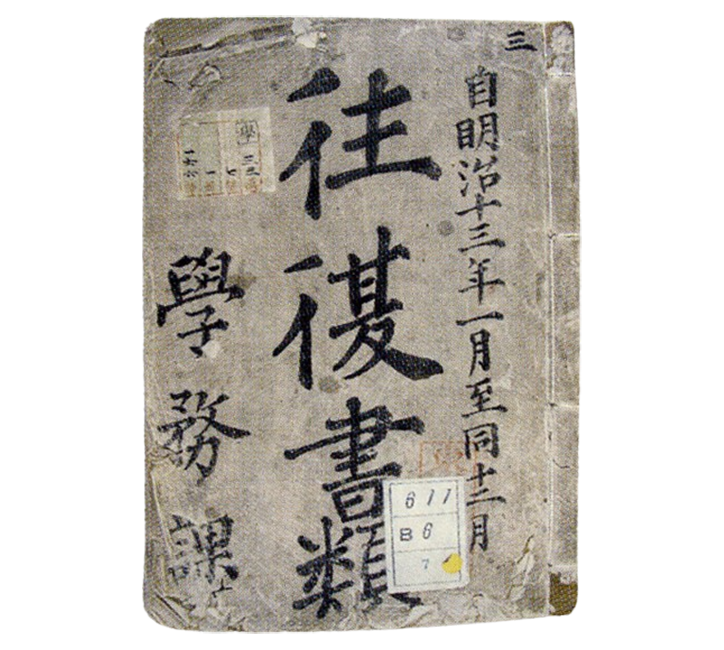 三
自明治十三年一月至同十二月
往復書類
學務課
學
三三
七
一
一六六
611
B 6
7